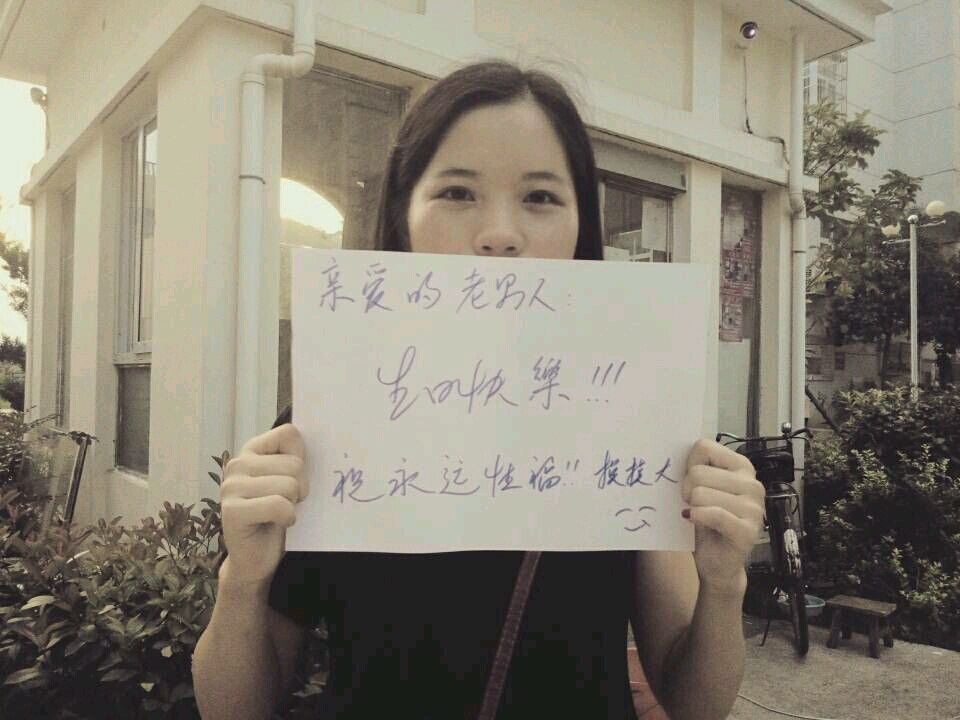 亲爱的老男人:
生日快樂!!!
祝永远性福!! 摸摸大